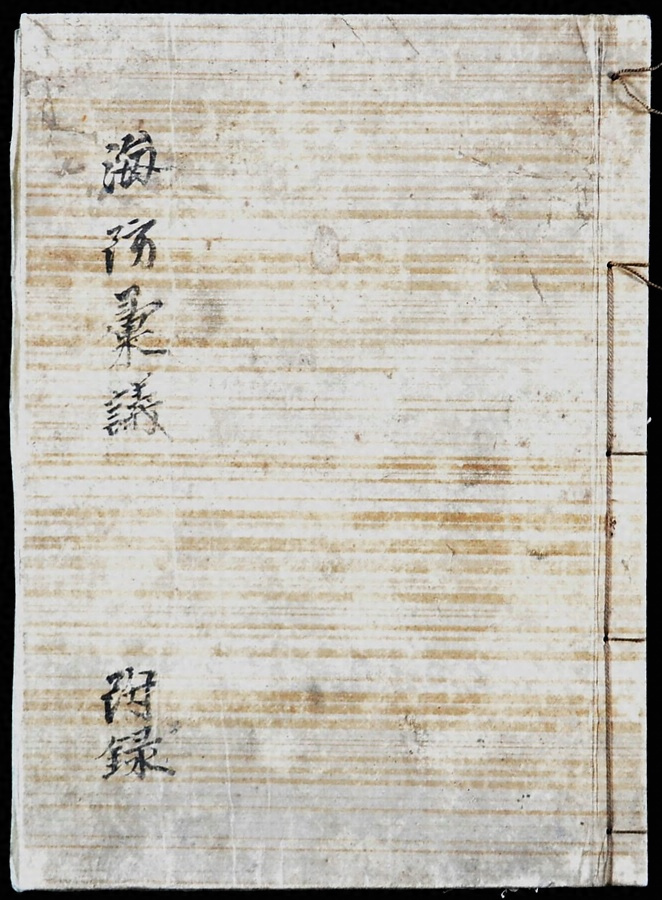 海防彙議 附録